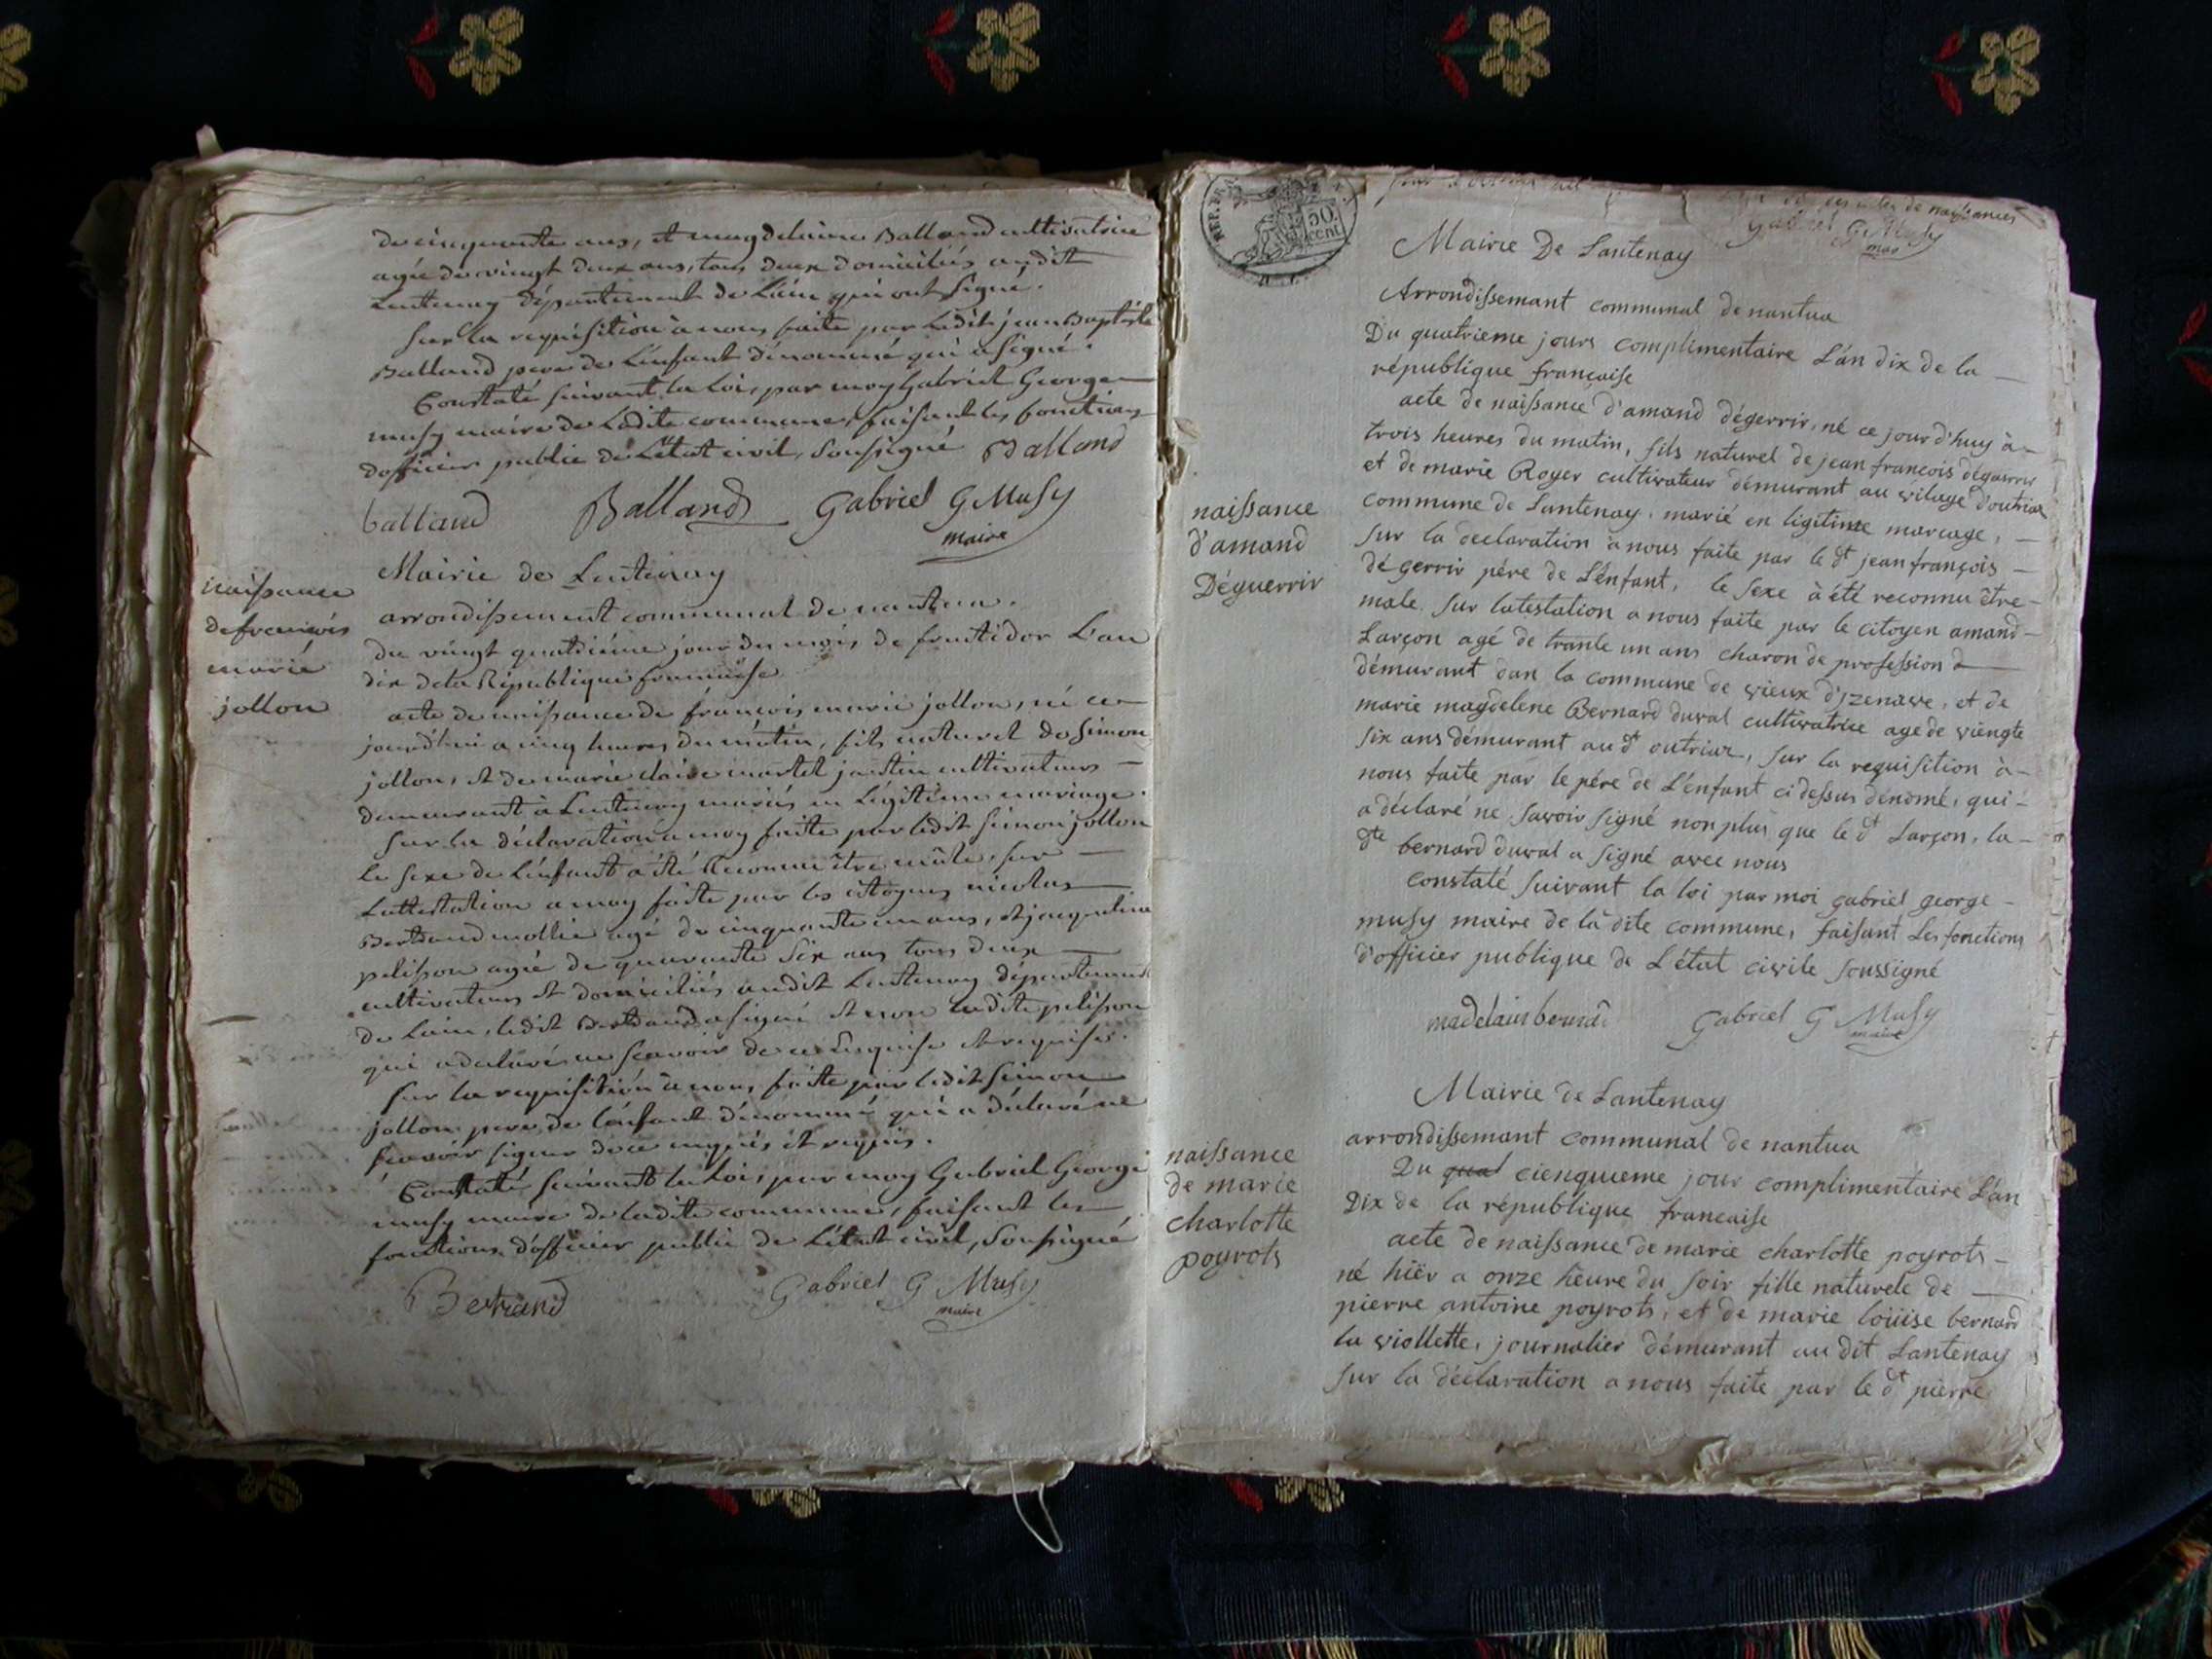 de cinquante ans, et magdelaine Balland cultivatrice
agée de vingt deux ans, tous deux domiciliés audit
Lentenay département de Lain qui ont signé.
sur la requisition à nous faite par ledit jean Baptiste
Balland pere de L'enfant dénommé qui a signé.
Constaté suivant la loi, par moy Gabriel George
musy maire de Ladite commune, faisant les fonctions
dofficier public de L'etat civil, Soussigné Balland
balland Balland Gabriel G Musy
maire
naissance
de françois
marie
jollon
Mairie de Lentenay
arrondissement communal de nantua.
du vingt quatrième jour du mois de fructidor L'an
dix de la République française
acte de naissance de françois marie jollon, né ce
jourd'hui a cinq heures du matin, fils naturel de Simon
jollon, et de marie claire martel jantin cultivateurs
demeurant à Lentenay mariés en Légitime mariage.
sur la déclaration a moy faite par ledit simon jollon
Le sexe de L'enfant a été Reconnu être mâle, sur
L'attestation a moy faite par les citoyens nicolas
Bertrand mollie agé de cinquante un ans, et jacqueline
pelisson agée de quarante Six ans tous deux
cultivateurs et domiciliés audit Lentenay département
de Lain, ledit Bertrand a signé et non ladite pelisson
qui a declaré ne sçavoir de ce Enquise et requise.
sur la requisition à nous faite par ledit Simon
jollon pere de L'enfant dénommé qui a déclaré ne
sçavoir signer de ce enquis et requis.
Constaté suivant la Loi, par moy Gabriel George
musy maire de ladite commune, faisant les
fonctions d'officier public de L'état civil, Soussigné
Bertrand Gabriel G Musy
maire
REP. FRA
50.
cent
de naissances
Gabriel G Musy
mae
Mairie De Lantenay
Arrondissemant communal de nantua
Du quatrieme jours complimentaire L'an dix de la
république française
naissance
d'amand
Déguerrir
acte de naissance d'amand dégerrir, né ce jour d'huy à
trois heures du matin, fils naturel de jean françois dégaurrir
et de marie Royer cultivateur démurant au vilage d'outriar
commune de Lantenay, marié en ligitime mareage,
sur la declaration à nous faite par le dt jean françois
dégerrir pére de L'enfant, le sexe à été reconnu être
male. sur latestation a nous faite par le citoyen amand
Larçon agé de trante un ans charon de profession d
démurant dan la commune de vieux d'jzenave, et de
marie magdelene Bernard duval cultivatrice age de viengte
six ans démurant au dt outriar, sur la requisition à
nous faite par le pére de L'enfant ci dessus dénomé, qui
a déclaré ne savoir signé non plus que le dt Larçon, la
dte bernard duval a signé avec nous
constaté suivant la loi par moi gabriel george
musy maire de la dite commune, faisant Les fonctions
d'officier publique de L'état civile soussigné
madelain bernard Gabriel G Musy
maire
Mairie de Lantenay
arrondissemant communal de nantua
naissance
de marie
charlotte
poyrots
Du qual cienquieme jour complimentaire L'an
Dix de la république francaise
acte de naissance de marie charlotte poyrots
né hiër a onze heure du soir fille naturele de
pierre antoine poyrots, et de marie loüise bernard
la viollette, journalier démurant au dit Lantenay
sur la déclaration a nous faite par le dt pierre